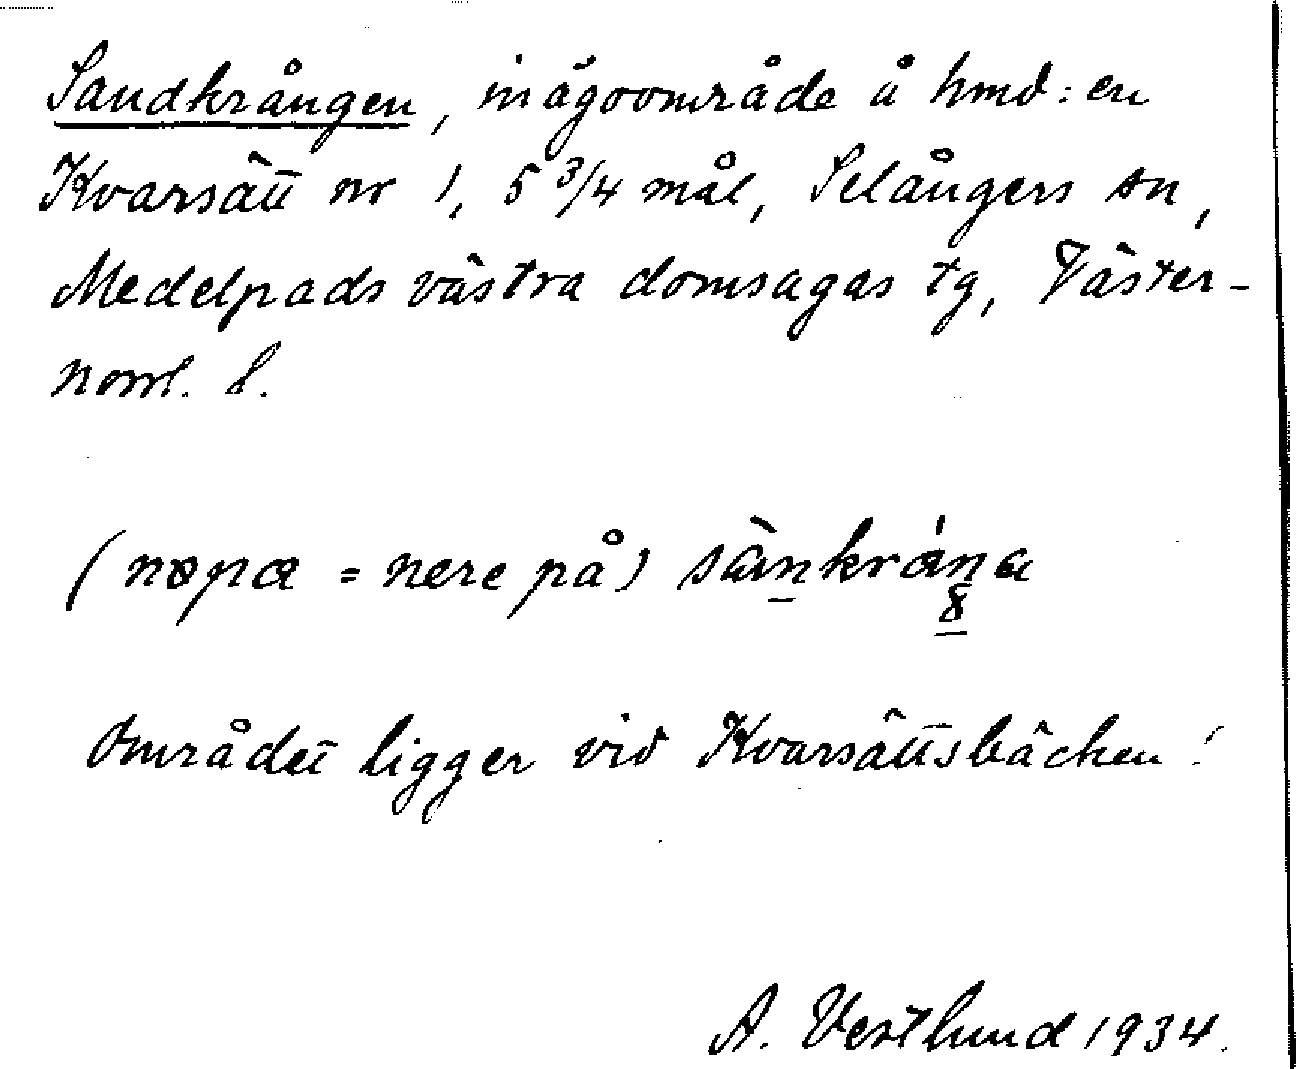 Sandkrången, inägoområde å hmd:en
Kvarsätt nr 1, 5 3/4 mål, Selångers sn,
Medelpads västra domsagas tg, Väster-
norrl. l.
( = nere på)
Området ligger vid Kvarsättsbäcken!
A. Vestlund 1934.